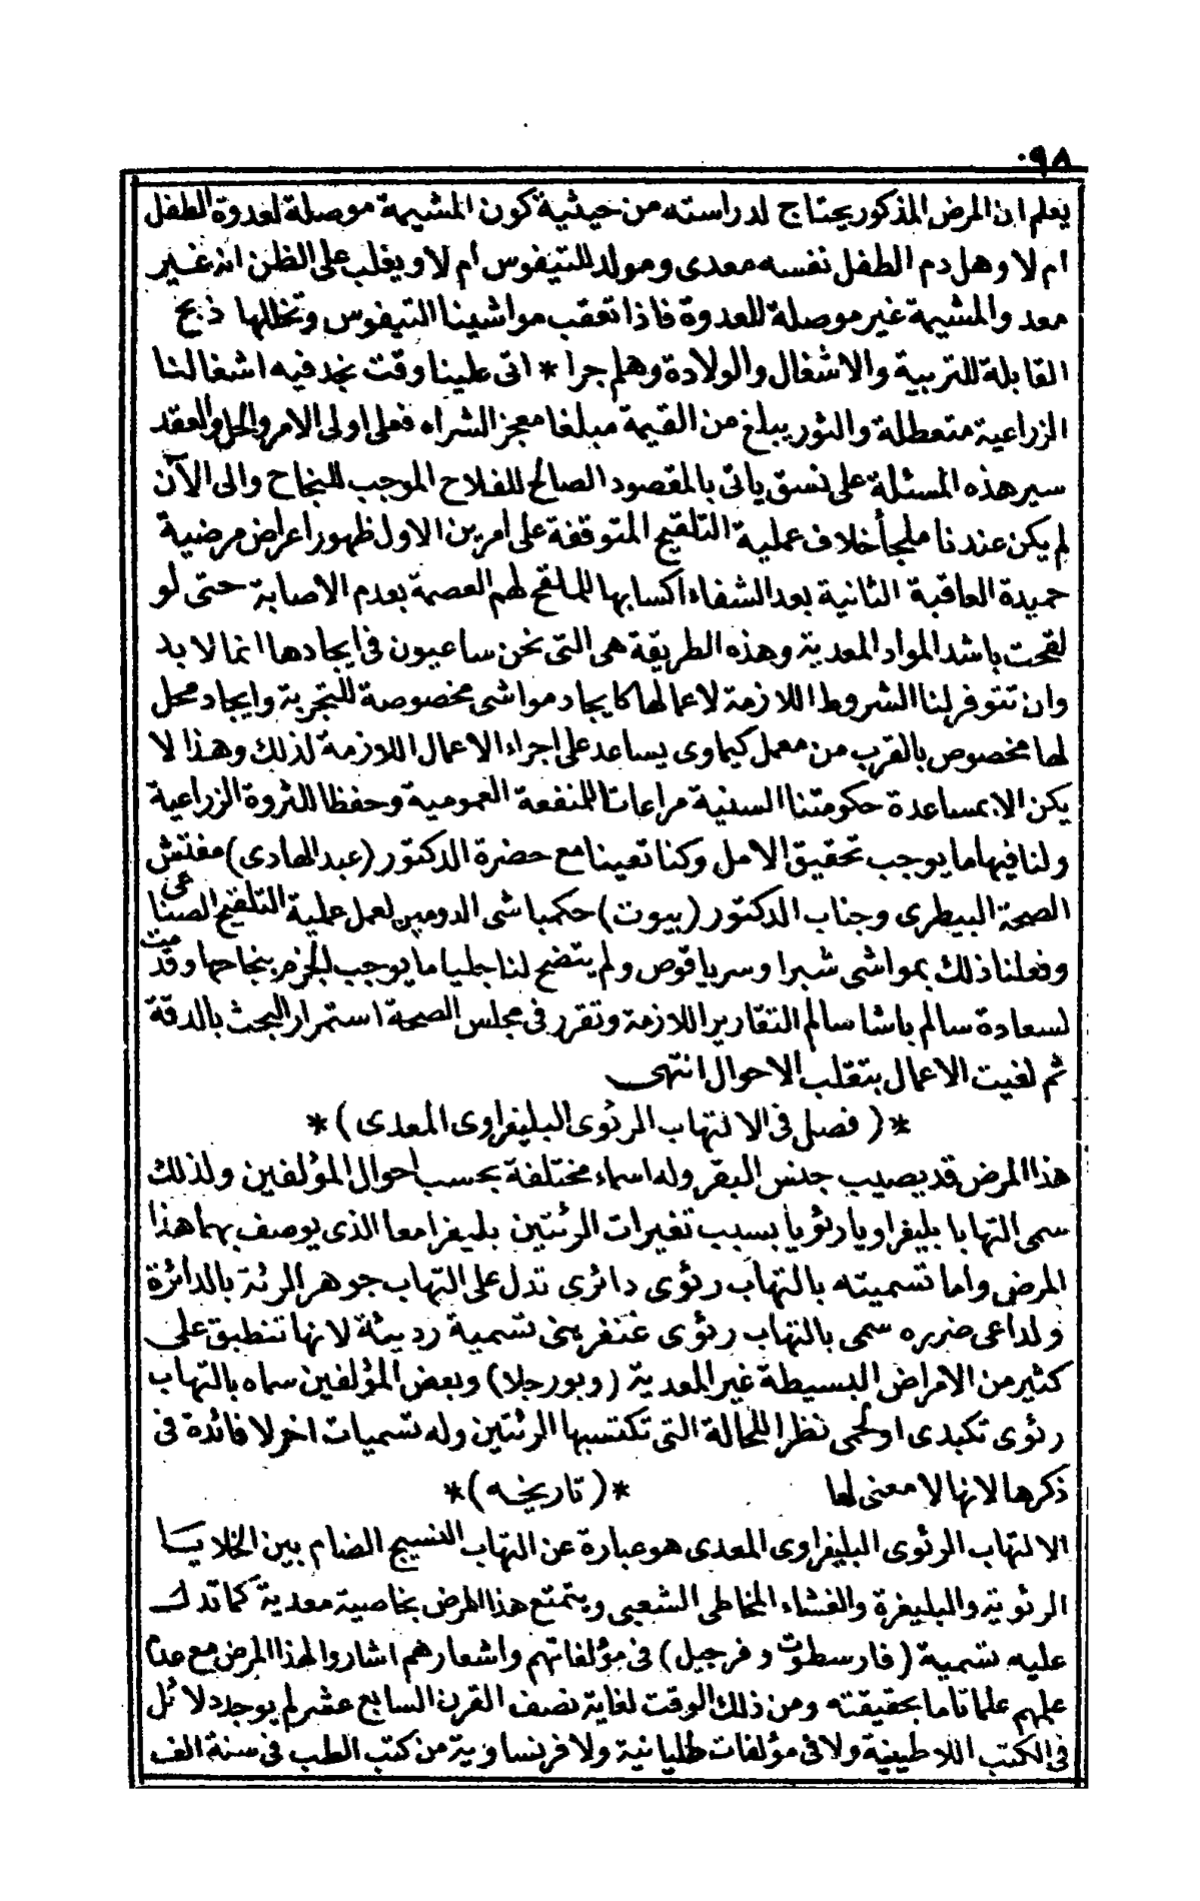 ٠٩٨
يعلم ان المرض المذكور يحتاج لدراسته من حيثية كون المشيمة موصلة لعدوة الطفل
ام لا وهل دم الطفل نفسه معدى ومولد للتيفوس ام لا ويغلب على الظن انه غير
معد والمشيمة غير موصلة للعدوة فاذا تعقب مواشينا التيفوس وتخللها ذبح
القابلة للتربية والاشغال والولادة وهلم جرا * اتى علينا وقت نجد فيه اشغالنا
الزراعية متعطلة والثور يبلغ من القيمة مبلغا معجز الشراء فعلى اولى الامر والحل والعقد
سير هذه المسئلة على نسق ياتى بالمقصود الصالح للفلاح الموجب للنجاح والى الآن
لم يكن عندنا ملجأ خلاف عملية التلقيح المتوقفة على امرين الاول ظهور اعراض مرضية
حميدة العاقبة الثانية بعد الشفاء اكسابها للملقح لهم العصمة بعدم الاصابة حتى لو
لقحت باشد المواد المعدية وهذه الطريقة هى التى نحن ساعيون فى ايجادها انما لا بد
وان تتوفر لنا الشروط اللازمة لاعمالها كايجاد مواشى مخصوصة للتجربة وايجاد محل
لها مخصوص بالقرب من معمل كيماوى يساعد على اجراء الاعمال اللازمة لذلك وهذا لا
يكن الا بمساعدة حكومتنا السنية مراعات للمنفعة العمومية وحفظا للثروة الزراعية
ولنا فيها ما يوجب تحقيق الامل وكنا تعينا مع حضرة الدكتور (عبد الهادى) مفتش
الصحة البيطرى وجناب الدكتور (بيوت) حكمباشى الدومين لعمل عملية التلقيح الصناعى
وفعلنا ذلك بمواشى شبرا وسرياقوص ولم يتضح لنا جليا ما يوجب الجزم بنجاحها وقدمت
لسعادة سالم باشا سالم التقارير اللازمة وتقرر فى مجلس الصحة استمرار البحث بالدقة
ثم لغيت الاعمال بتقلب الاحوال انتهى
*( فصل فى الالتهاب الرئوى البليفراوى المعدى )*
هذا المرض قد يصيب جنس البقر وله اسماء مختلفة بحسب احوال المؤلفين ولذلك
سمى التهابا بليفراويا رئويا بسبب تغيرات الرئتين بليفرا معا الذى يوصف بهما هذا
المرض واما تسميته بالتهاب رئوى دائرى تدل على التهاب جوهر الرئة بالدائرة
ولداعى ضرره سمى بالتهاب رئوى غنغرينى تسمية رديئة لانها تنطبق على
كثير من الامراض البسيطة غير المعدية (وبورجلا) وبعض المؤلفين سماه بالتهاب
رئوى تكبدى او لحمى نظرا للحالة التى تكتسبها الرئتين وله تسميات اخر لا فائدة فى
ذكرها لانها لا معنى لها *( تاريخه )*
الالتهاب الرئوى البليفراوى المعدى هو عبارة عن التهاب النسيج الضام بين الخلايا
الرئوية والبليفرة والغشاء المخاطى الشعبى ويتمتع هذا المرض بخاصية معدية كما تدل
عليه تسمية (فارسطوت وفرجيل) فى مؤلفاتهم واشعارهم اشاروا لهذا المرض مع عدم
علمهم علما تاما بحقيقته ومن ذلك الوقت لغاية نصف القرن السابع عشر لم يوجد دلائل
فى الكتب اللاطينية ولا فى مؤلفات طليانية ولا فرنساوية من كتب الطب فى سنة الف